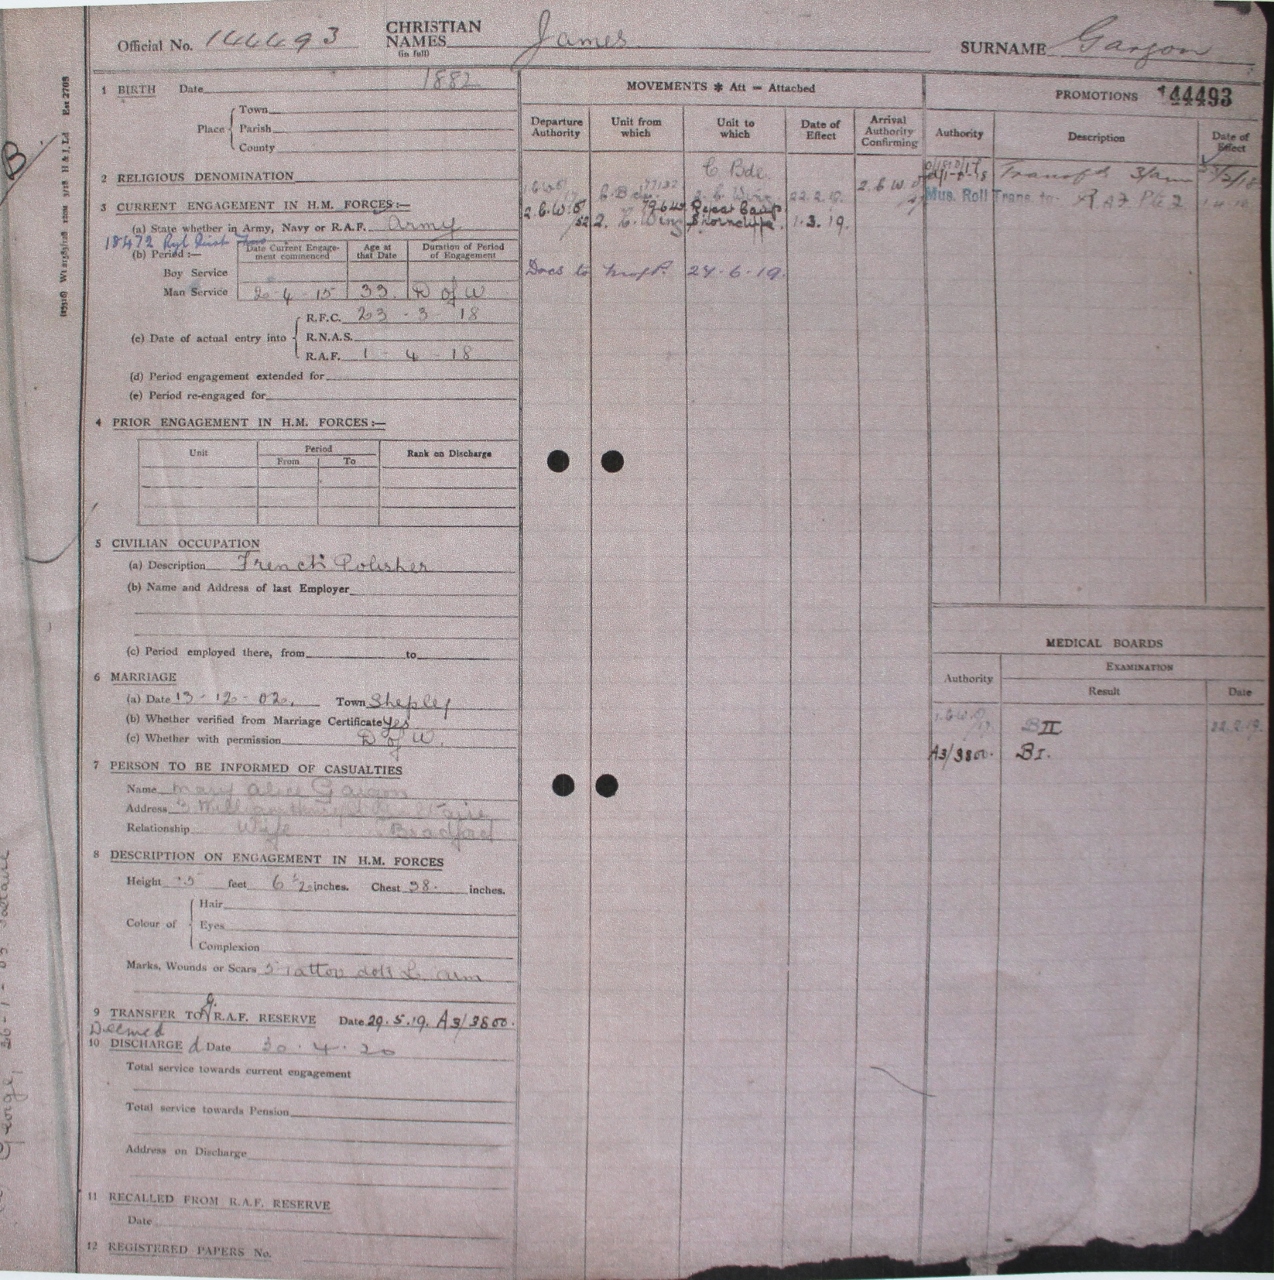 Official No. 144493 CHRISTIAN NAMES (in full) James SURNAME
1 BIRTH Date 1882
Place Town
Parish
County
2 RELIGIOUS DENOMINATION
3 CURRENT ENGAGEMENT IN H.M. FORCES:—
(a) State whether in Army, Navy or R.A.F. Army
18472
(b) Period:— Date Current Engagement commenced Age at that Date Duration of Period of Engagement
Boy Service
Man Service 2-4-15 33 D of W
(c) Date of actual entry into R.F.C. 23-3-18
R.N.A.S.
R.A.F. 1-4-18
(d) Period engagement extended for
(e) Period re-engaged for
4 PRIOR ENGAGEMENT IN H.M. FORCES:—
Unit Period Rank on Discharge
From To
5 CIVILIAN OCCUPATION
(a) Description French Polisher
(b) Name and Address of last Employer
(c) Period employed there, from to
6 MARRIAGE
(a) Date 13-12-02. Town Shepley
(b) Whether verified from Marriage Certificate Yes
(c) Whether with permission D of W.
7 PERSON TO BE INFORMED OF CASUALTIES
Name Mary Alice
Address
Relationship Wife Bradford
8 DESCRIPTION ON ENGAGEMENT IN H.M. FORCES
Height 5 feet 6½ inches. Chest 38. inches.
Colour of Hair
Eyes
Complexion
Marks, Wounds or Scars L. arm
9 TRANSFER TO R.A.F. RESERVE Date 29.5.19. A3/3800.
Deemed
10 DISCHARGE d Date 30.4.20
Total service towards current engagement
Total service towards Pension
Address on Discharge
11 RECALLED FROM R.A.F. RESERVE
Date
12 REGISTERED PAPERS No.
MOVEMENTS * Att = Attached
Departure Authority Unit from which Unit to which Date of Effect Arrival Authority Confirming
C Bde
22.2.19.
2. Wing 1.3.19.
Docs to 24.6.19.
PROMOTIONS 144493
Authority Description Date of Effect
Mus. Roll Trans. to RAF Pte 2
MEDICAL BOARDS
Authority EXAMINATION
Result Date
BII 22.2.19.
A3/3800. BI.